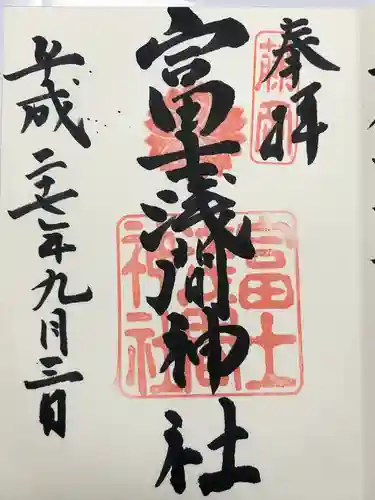 奉拝
藤岡
富士浅間神社
富士浅間神社
平成二十七年九月三日